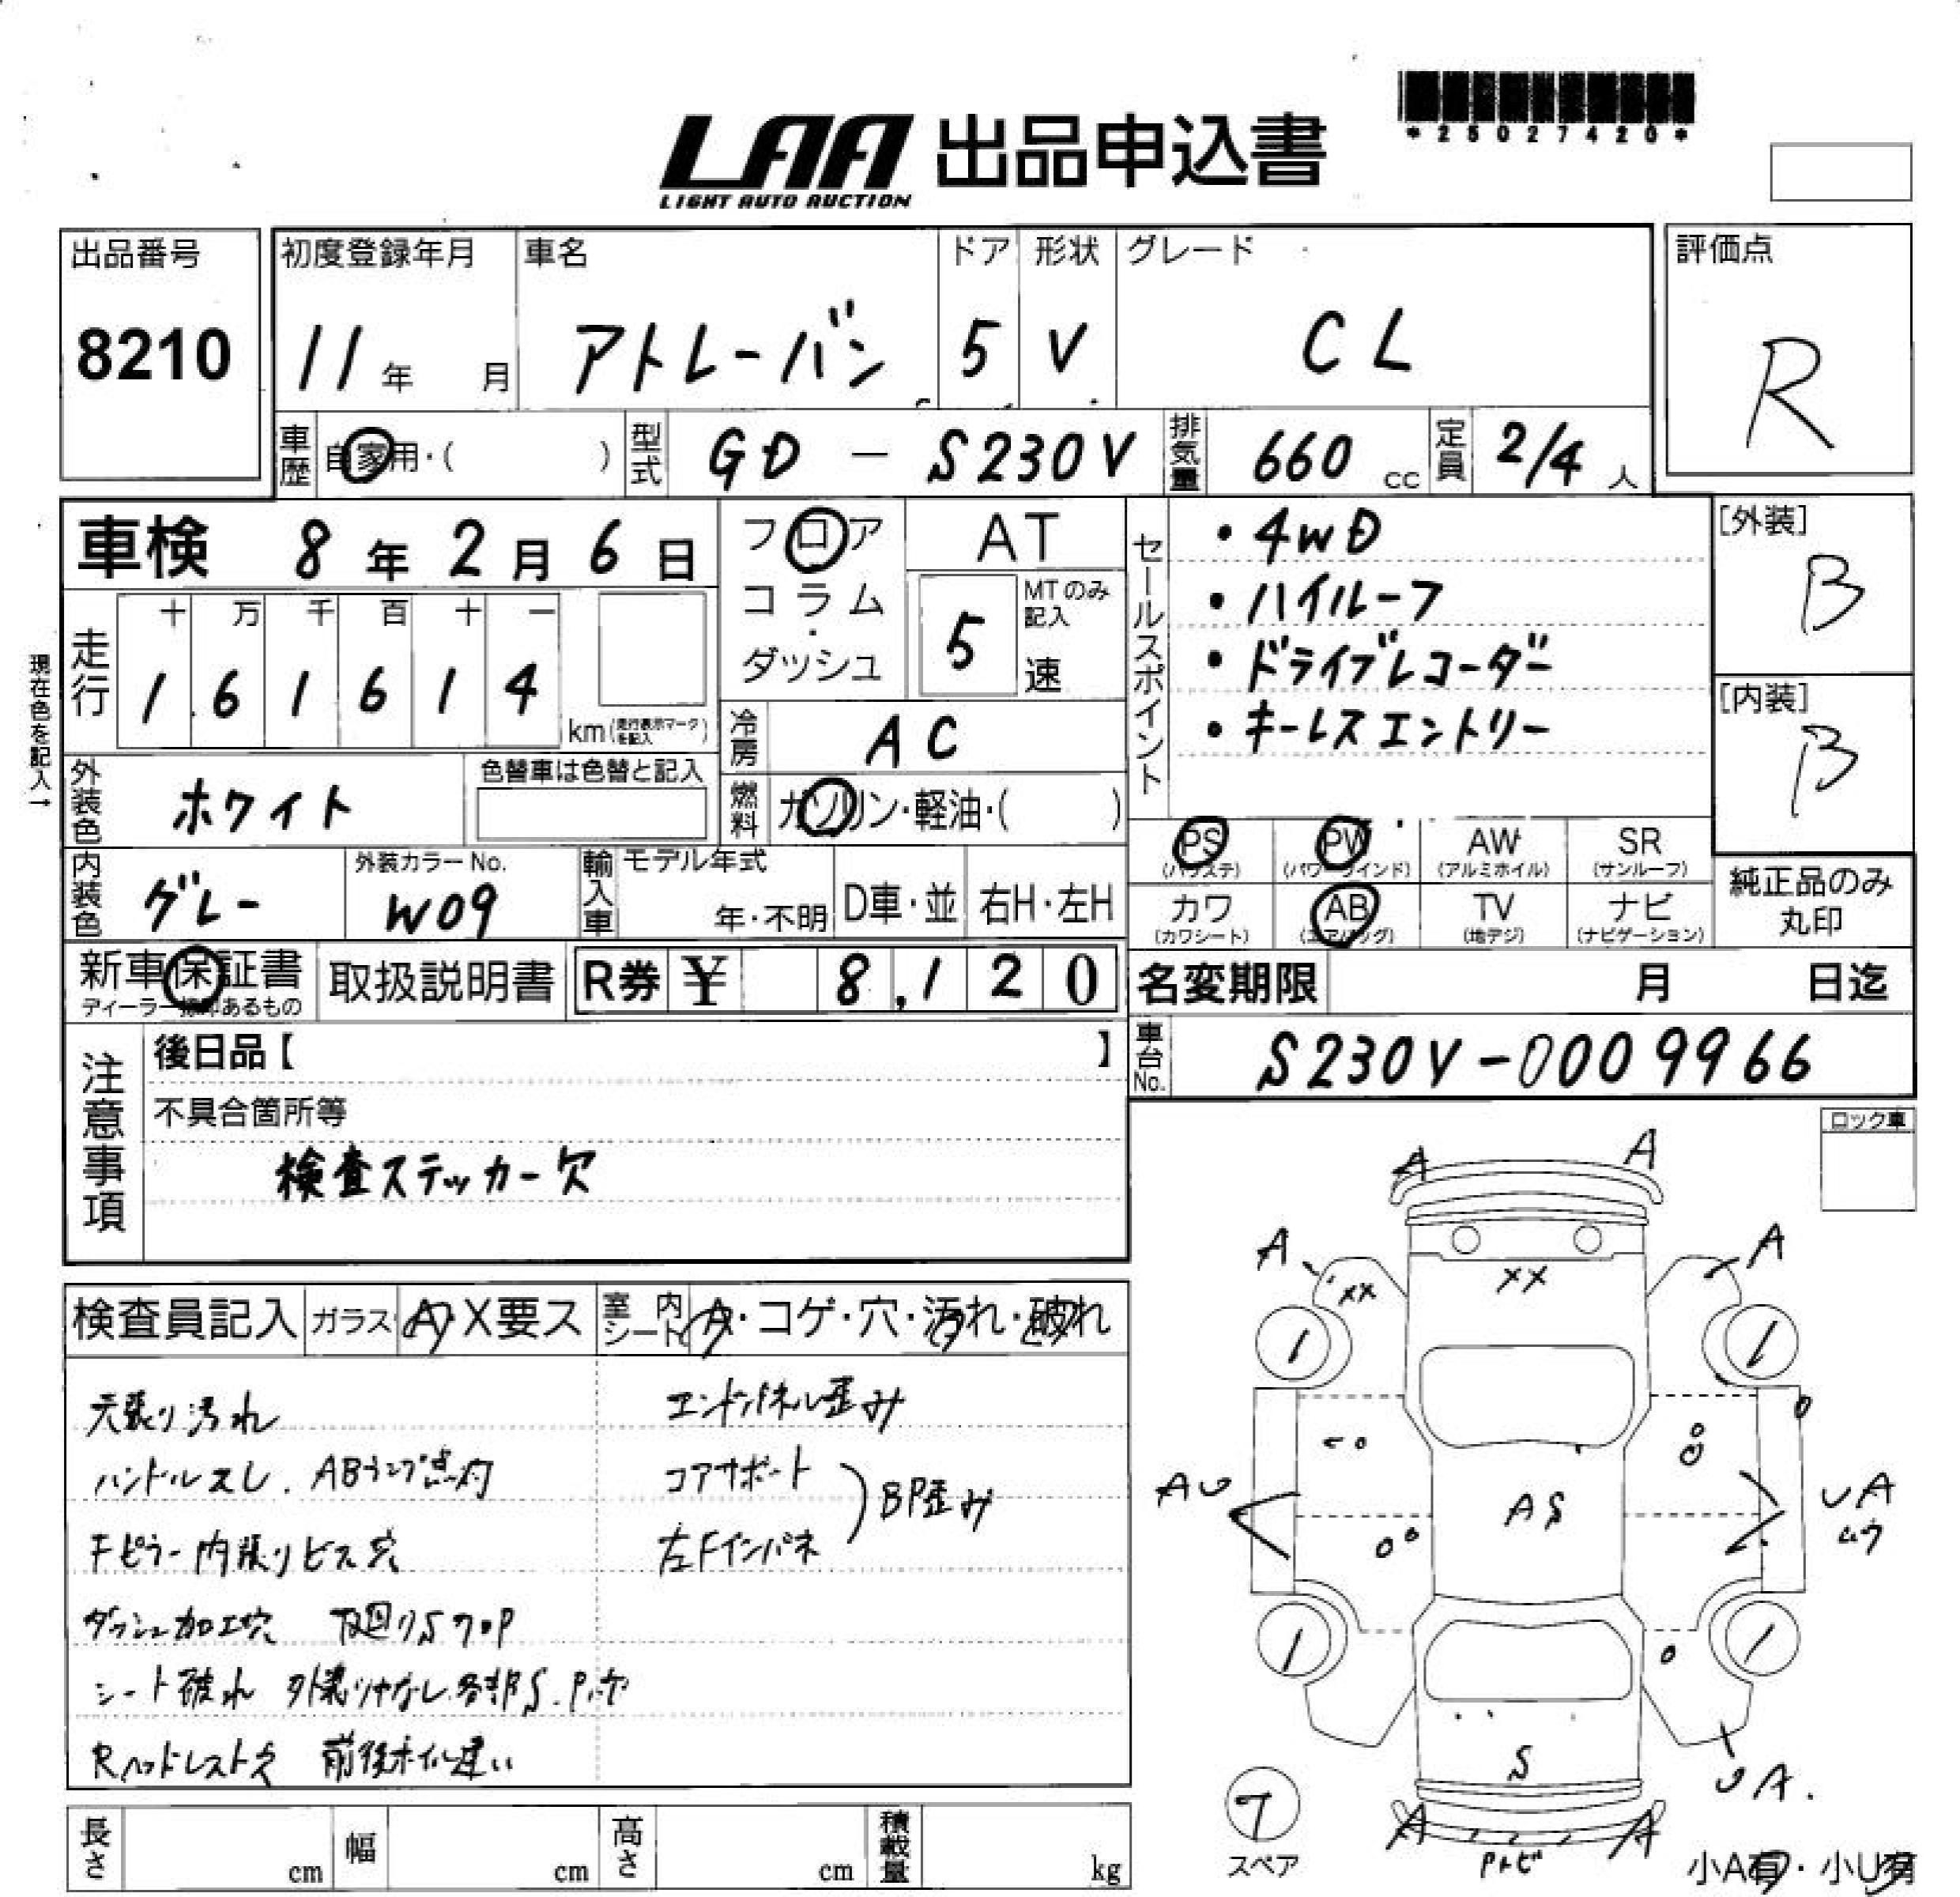 *25027420*
LAA 出品申込書
LIGHT AUTO AUCTION
出品番号 8210
初度登録年月 11年 月
車名 アトレーバン
ドア 5
形状 V
グレード CL
評価点 R
車歴 自家用・( )
型式 GD - S230V
排気量 660 cc
定員 2/4 人
車検 8年 2月 6日
フロア
コラム
・
ダッシュ
AT
MTのみ記入
5 速
セールスポイント
・4WD
・ハイルーフ
・ドライブレコーダー
・キーレスエントリー
[外装] B
[内装] B
現在色を記入→
走行 十 万 千 百 十 一
1 6 1 6 1 4
km(走行表示マークを記入)
冷房 AC
外装色 ホワイト
色替車は色替と記入
燃料 ガソリン・軽油・( )
内装色 グレー
外装カラーNo. W09
輸入車 モデル年式
年・不明
D車・並
右H・左H
PS (パワステ)
PW (パワーウインド)
AW (アルミホイル)
SR (サンルーフ)
カワ (カワシート)
AB (エアバッグ)
TV (地デジ)
ナビ (ナビゲーション)
純正品のみ
丸印
新車保証書
ディーラー捺印あるもの
取扱説明書
R券 ¥ 8,120
名変期限 月 日迄
車台No. S230V-0009966
注意事項
後日品【 】
不具合箇所等
検査ステッカー欠
ロック車
検査員記入 ガラス A・X要ス
室内シート A・コゲ・穴・汚れ・破れ
天張り汚れ
ハンドルスレ. ABランプ点灯
Fピラー内張りビス穴
ダッシュ加工穴 下廻りS
シート破れ 各部S.
Rヘッドレスト欠 前後ホイル違い
エンドパネル歪み
コアサポート
左Fインパネ
BP歪み
A A
A A
XX XX
1 1
AU
AS
UA
1 1
S
UA.
7
スペア
A A
Pトビ
小A有・小U有
長さ cm
幅 cm
高さ cm
積載量 kg